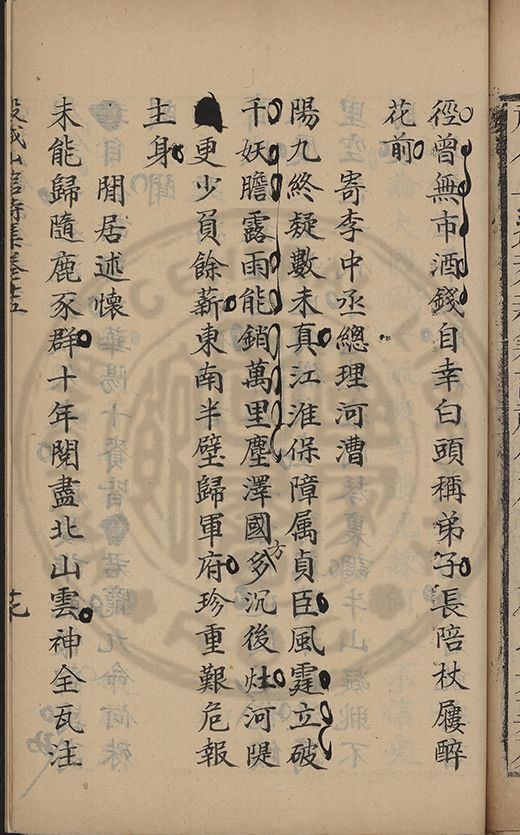 徑曾無市酒錢自幸白頭稱弟子長陪杖屨醉
花前
寄李中丞總理河漕
陽九終疑數未真江淮保障属貞臣風霆立破
千妖膽露雨能銷萬里塵澤國多沉後灶河隄
方
更少負餘薪東南半壁歸軍府珍重艱危報
主身
閒居述懷
未能歸隨鹿豕群十年閱盡北山雲神全瓦注